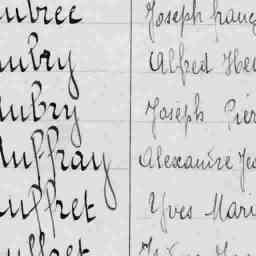 ubree Joseph franç
ubry Alfred He
ubry Joseph Pier
uffray Alexandre Je
uffret Yves Mari
uffret